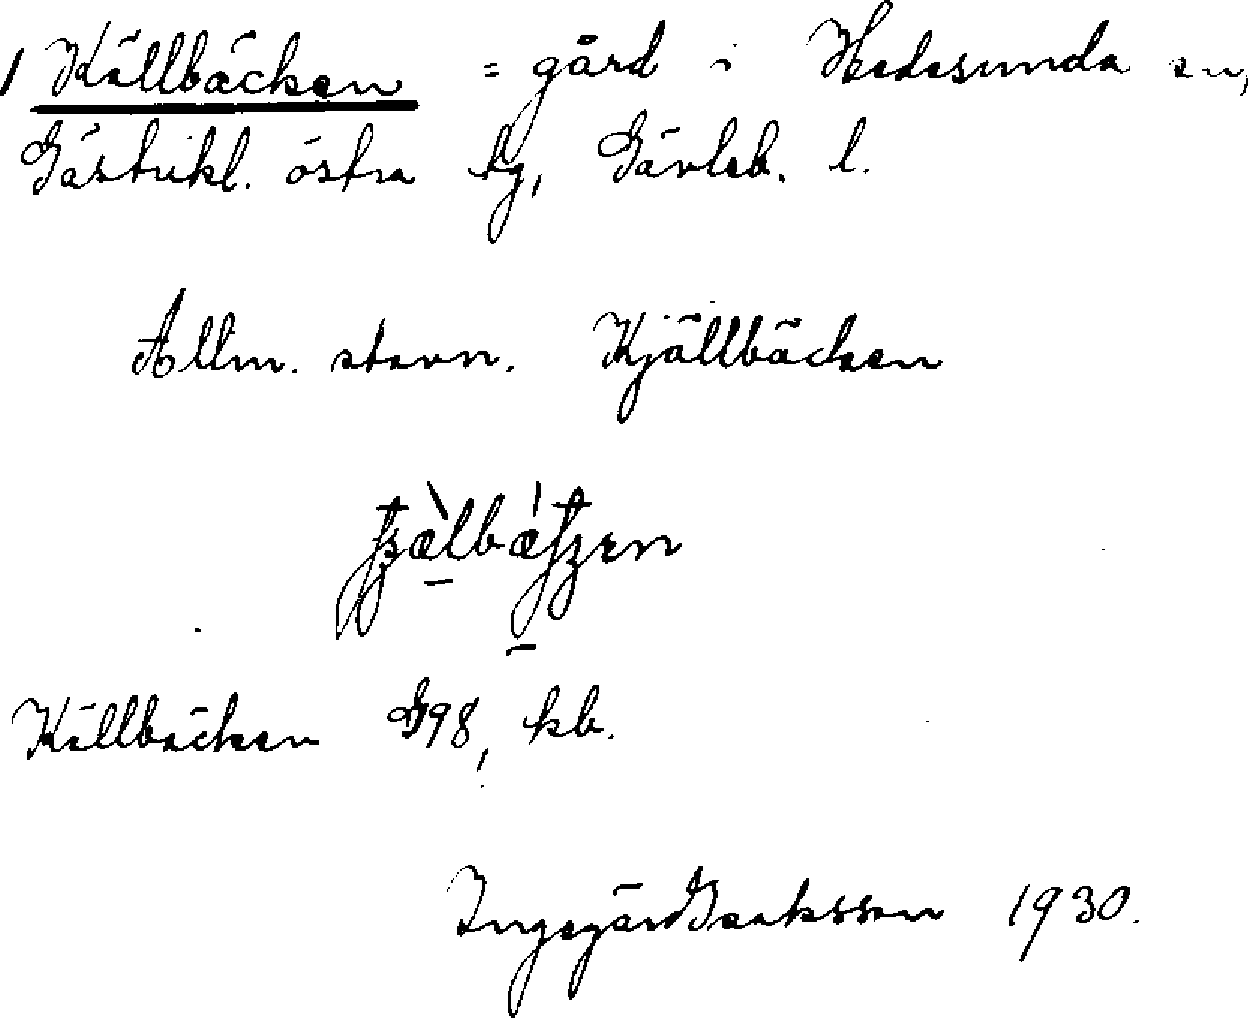 1 Källbäcken = gård i Hedesunda sn,
Gästrikl. östra tg, Gävleb. l.
Allm. stavn. Kjällbäcken
Källbäcken G98, kb.
Ingegärd Isaksson 1930.